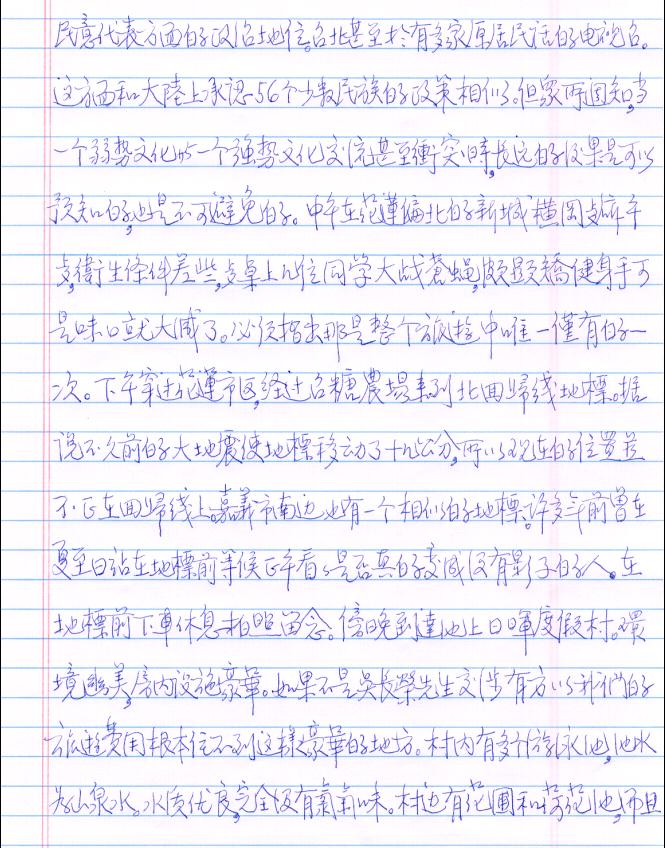 民意代表方面的政治地位。台北甚至於有多家原居民话的电視台。
这方面和大陸上承認56个少数民族的政策相似。但衆所週知,当
一个弱势文化的一个強势文化交流甚至衝突時,長远的後果是可以
预知的,也是不可避免的。中午在花蓮偏北的新城 横岡 午
,衛生條件差些,桌上几位同学大战蒼蝇,頗顯矯健身手可
是味口就大减了。必须指出那是整个旅遊中唯一僅有的一
次。下午穿过花蓮市区,经过台糖農場来到北回歸线地標。据
说不久前的大地震使地標移动了十几公分,所以现在的位置並
不正在回歸线上。嘉義市南边也有一个相似的地標。许多年前曾在
夏至日站在地標前等候正午看看是否真的变成没有影子的人。在
地標前下車休息拍照留念。傍晚到達池上日暉度假村。環
境幽美,房内设施豪華。如果不是吳長榮先生交涉有方以我们的
旅遊費用根本住不到这樣豪華的地方。村内有多个游泳池,池水
为山泉水。水质优良,完全没有氯氣味。村边有花圃和荷花池,而且